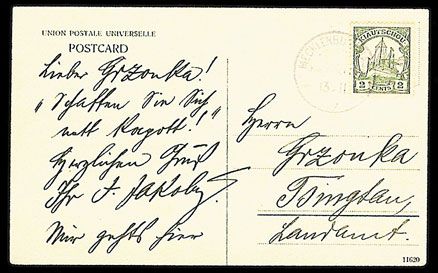 UNION POSTALE UNIVERSELLE
POSTCARD
Lieber Grzonka!
"Schaffen Sie Sich
Herzlichen Gruß
Ihr J. Jakoby.
Mir gehts hier
MECKLENBU
KIAUTSCHOU
2 CENTS 2
Herrn
Grzonka
Tsingtau,
Landamt.
11620